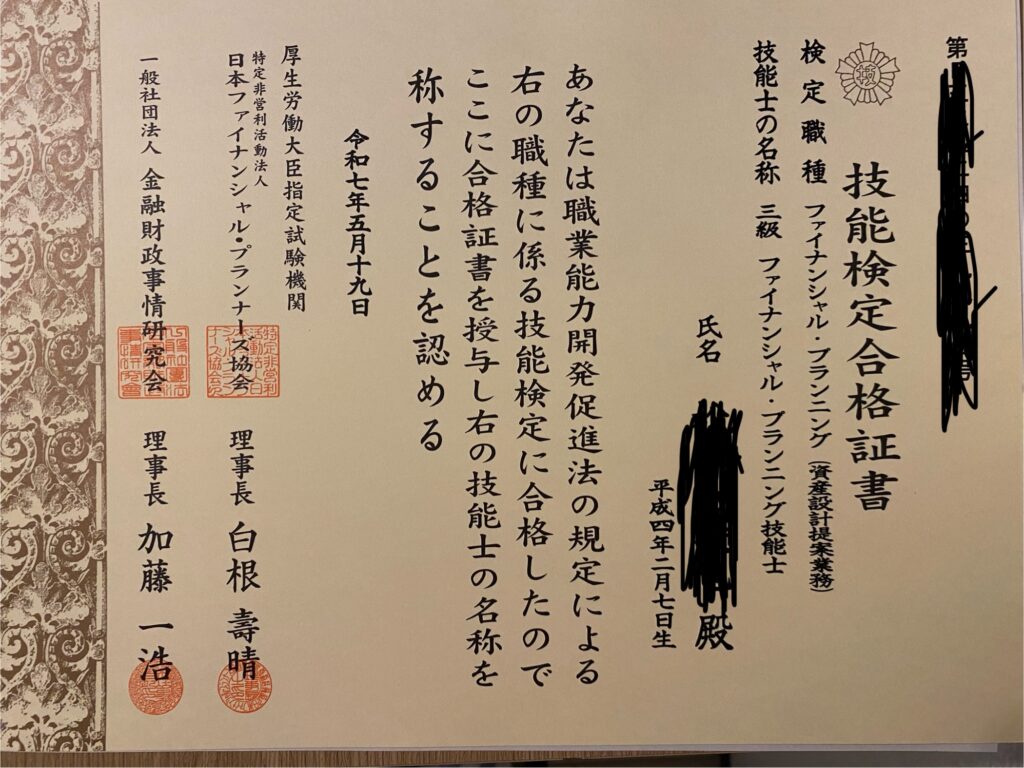 第
技能検定合格証書
検定職種 ファイナンシャル・プランニング（資産設計提案業務）
技能士の名称 三級 ファイナンシャル・プランニング技能士
氏名 殿
平成四年二月七日生
あなたは職業能力開発促進法の規定による
右の職種に係る技能検定に合格したので
ここに合格証書を授与し右の技能士の名称を
称することを認める
令和七年五月十九日
厚生労働大臣指定試験機関
特定非営利活動法人
日本ファイナンシャル・プランナーズ協会 理事長 白根 壽晴
一般社団法人 金融財政事情研究会 理事長 加藤 一浩